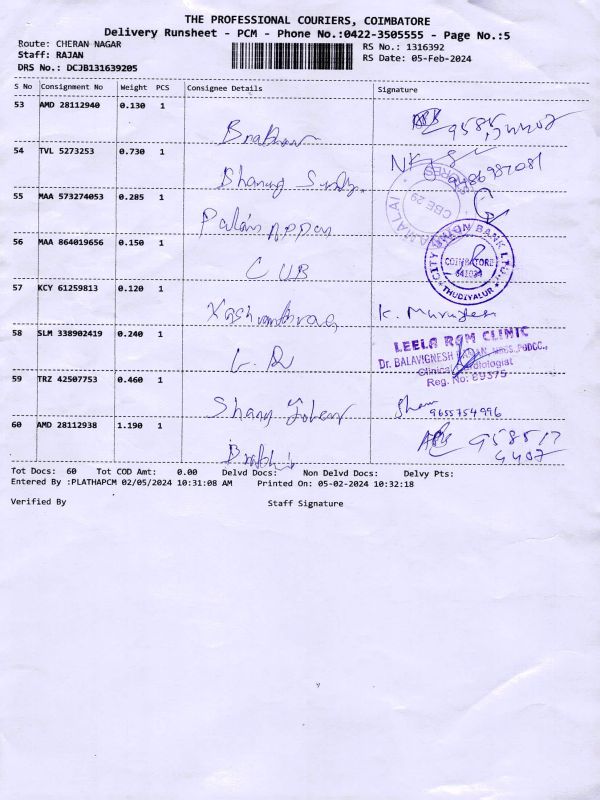 THE PROFESSIONAL COURIERS, COIMBATORE
Delivery Runsheet - PCM - Phone No.:0422-3505555 - Page No.:5
Route: CHERAN NAGAR
RS No.: 1316392
Staff: RAJAN
RS Date: 05-Feb-2024
DRS No.: DCJB131639205
S No Consignment No Weight PCS Consignee Details Signature
53 AMD 28112940 0.130 1
54 TVL 5273253 0.730 1
9486987081
55 MAA 573274053 0.285 1
CBE 29
Palaniappan
56 MAA 864019656 0.150 1
CUB
CITY UNION BANK LTD
COIMBATORE
641034
THUDIYALUR
57 KCY 61259813 0.120 1
K. Murugesan
58 SLM 338902419 0.240 1
LEELA RAM CLINIC
Dr. BALAVIGNESH
Clinical Cardiologist
Reg. No: 89375
59 TRZ 42507753 0.460 1
9655754996
60 AMD 28112938 1.190 1
958517
4407
Tot Docs: 60 Tot COD Amt: 0.00 Delvd Docs: Non Delvd Docs: Delvy Pts:
Entered By :PLATHAPCM 02/05/2024 10:31:08 AM Printed On: 05-02-2024 10:32:18
Verified By Staff Signature